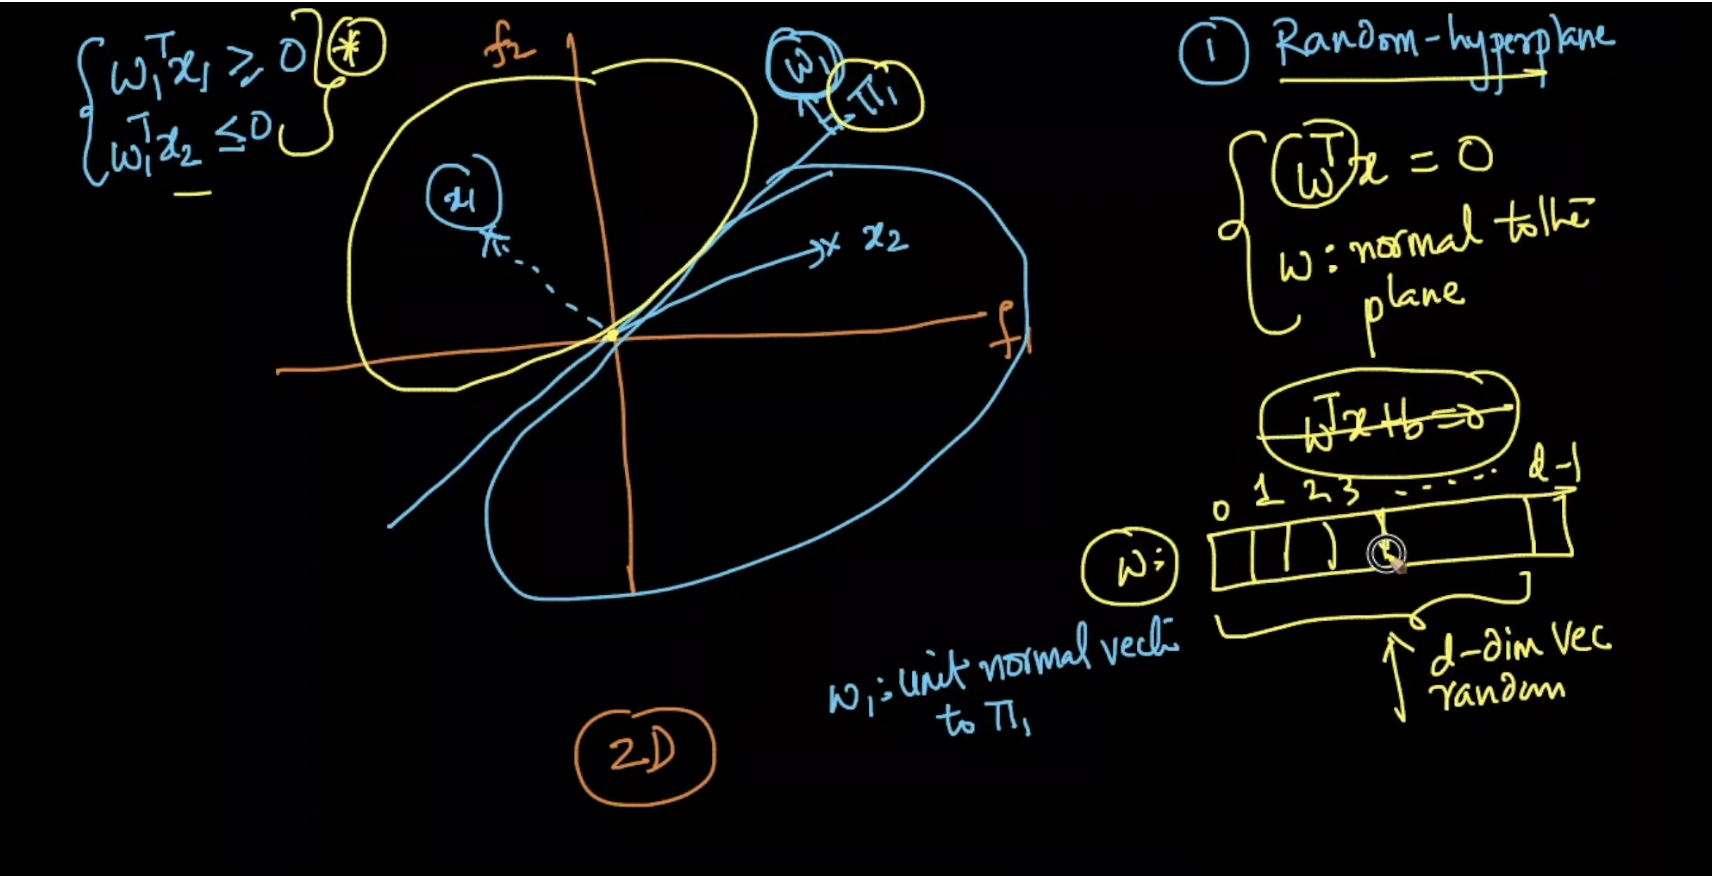 w₁ᵀx₁ ≥ 0
*
w₁ᵀx₂ ≤ 0
f₂
w₁
π₁
x₁
x₂
f₁
2D
w₁: unit normal vect
to π₁
1 Random-hyperplane
wᵀx = 0
w: normal to the
plane
wᵀx+b=0
0 1 2 3 ...... d-1
w:
d-dim vec
random